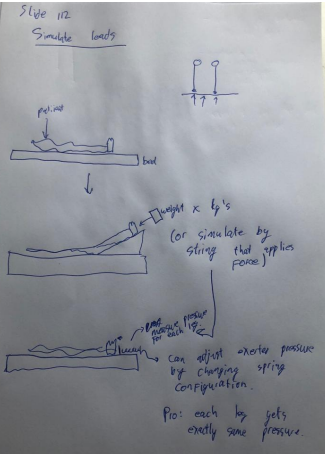 Slide 112
Simulate loads
patient
bed
weight x kg's
(or simulate by
string that applies
Force)
measure pressure
for each leg.
can adjust exerted pressure
by changing spring
configuration.
Pro: each leg gets
exactly same pressure.